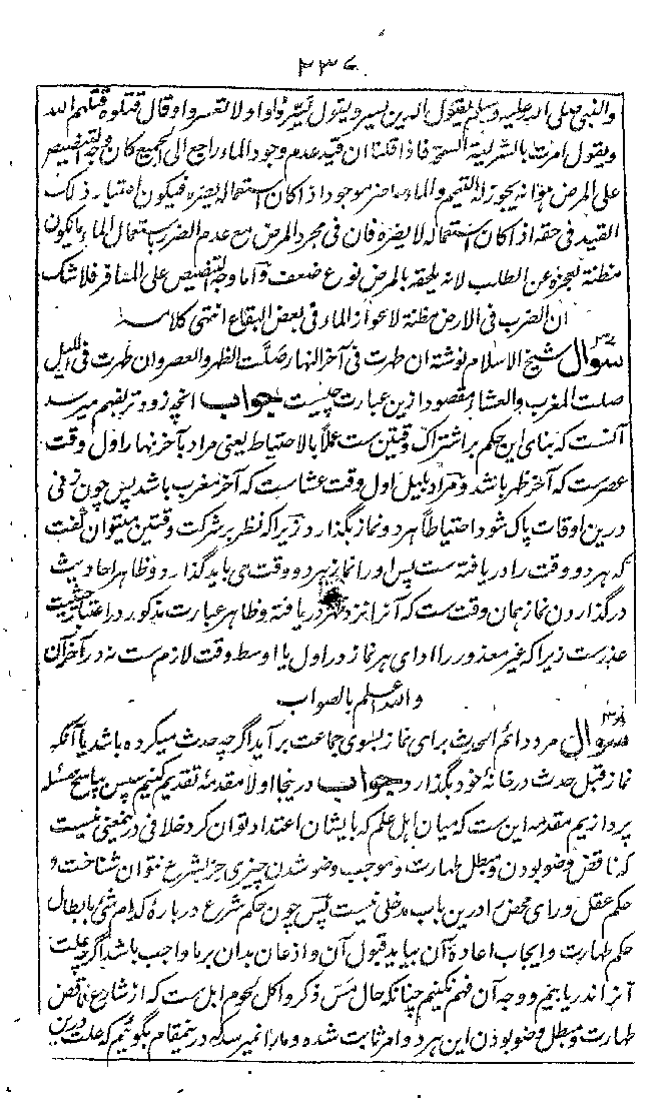 ۲۳۶
والنبی صلی الله علیه وسلم یقول الدین یسر ویقول یسروا ولا تعسروا وقال قتلوه قتلهم الله
ویقول امرت بالشریعة السمحة فاذا قلنا ان قید عدم وجود الماء راجع الی الجمیع کان وجه التخصیص
علی المرض هو انه یجوز له التیمم والماء حاضر موجود اذا کان استعماله یضره فیکون اعتبار ذلک
القید فی حقه اذا کان استعماله لا یضره فان فی مجرد المرض مع عدم الضرر باستعمال الماء ما یکون
مظنة لعجزه عن الطلب لانه یلحقه بالمرض نوع ضعف واما وجه التخصیص علی المسافر فلا شک
ان الضرب فی الارض مظنة لاعواز الماء فی بعض البقاع انتهی کلامه
سوال شیخ الاسلام نوشته ان طهرت فی آخر النهار صلت الظهر والعصر وان طهرت فی اللیل
صلت المغرب والعشاء مقصود ازین عبارت چیست جواب انچه زودتر بفهم میرسد
آنست که بنای این حکم بر اشتراک وقتین ست عملا بالاحتیاط یعنی مراد بآخر نهار اول وقت
عصرست که آخر ظهر باشد و مراد بلیل اول وقت عشاست که آخر مغرب باشد پس چون زنی
درین اوقات پاک شود احتیاطاً هر دو نماز بگذارد زیرا که نظر بر شرکت وقتین میتوان گفت
که هر دو وقت را دریافته ست پس او را نماز هر دو وقت می باید گذارد و ظاهر احادیث
درگذاردن نماز همان وقت ست که آنرا نزد طهر دریافته و ظاهر عبارت مذکور در اعتبار حیثیت
عذرست زیرا که غیر معذور را ادای هر نماز در اول یا اوسط وقت لازم ست نه در آخر آن
والله اعلم بالصواب
سوال مرد دائم الحدث برای نماز بسوی جماعت برآید اگرچه حدث میکرده باشد یا آنکه
نماز قبل حدث در خانهٔ خود بگذارد جواب درینجا اولا مقدمه تقدیم کنیم سپس بپاسخ مسئله
پردازیم مقدمه این ست که میان اهل علم که بایشان اعتداد توان کرد خلافی درینمعنی نیست
که ناقض وضو بودن و مبطل طهارت و موجب وضو شدن چیزی جز بشرع نتوان شناخت و
حکم عقل و رای محض را درین باب مدخلی نیست پس چون حکم شرع دربارهٔ کدام شی بابطال
حکم طهارت و ایجاب اعادهٔ آن بیاید قبول آن و اذعان بدان بر ما واجب باشد اگرچه علت
آنرا ندریابیم و وجه آن فهم نکنیم چنانکه حال مس ذکر و اکل لحوم ابل ست که از شارع ناقض
طهارت و مبطل وضو بودن این هر دو امر ثابت شده و ما را نمیرسد که درینمقام بگوئیم که علت درین